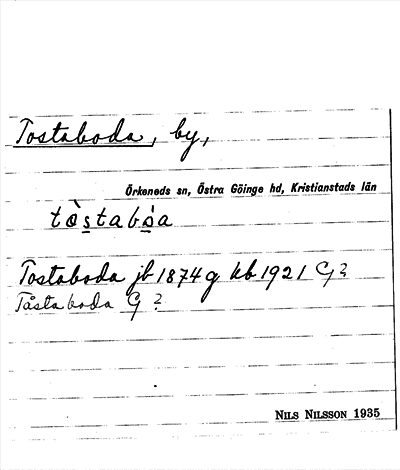 Tostaboda, by,
Örkeneds sn, Östra Göinge hd, Kristianstads län
tòstabòa
Tostaboda jb 1874 g kb 1921 G?
Tåstaboda G ?
NILS NILSSON 1935